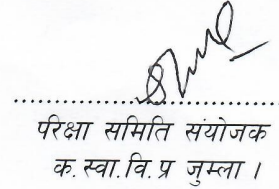 परिक्षा समिति संयोजक
क. स्वा. वि. प्र जुम्ला ।